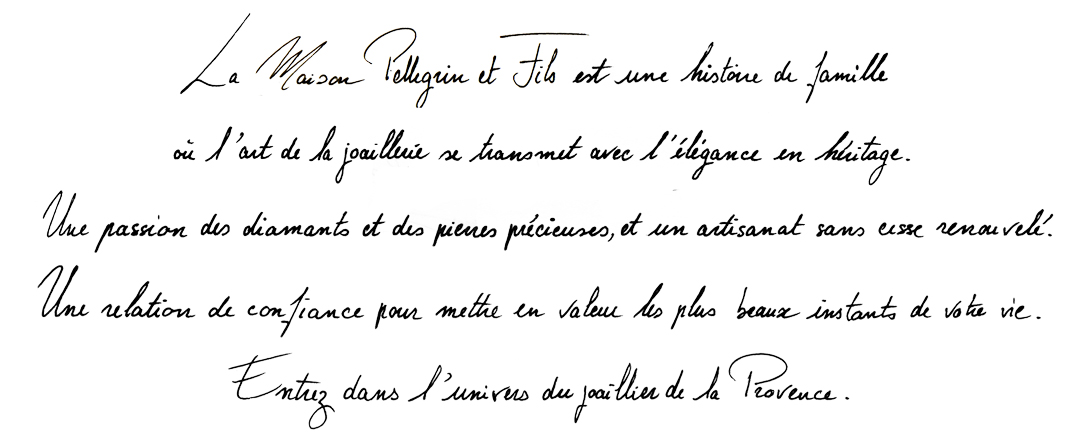 La Maison Pellegrin et Fils est une histoire de famille
où l'art de la joaillerie se transmet avec l'élégance en héritage.
Une passion des diamants et des pierres précieuses, et un artisanat sans cesse renouvelé.
Une relation de confiance pour mettre en valeur les plus beaux instants de votre vie.
Entrez dans l'univers du joaillier de la Provence.